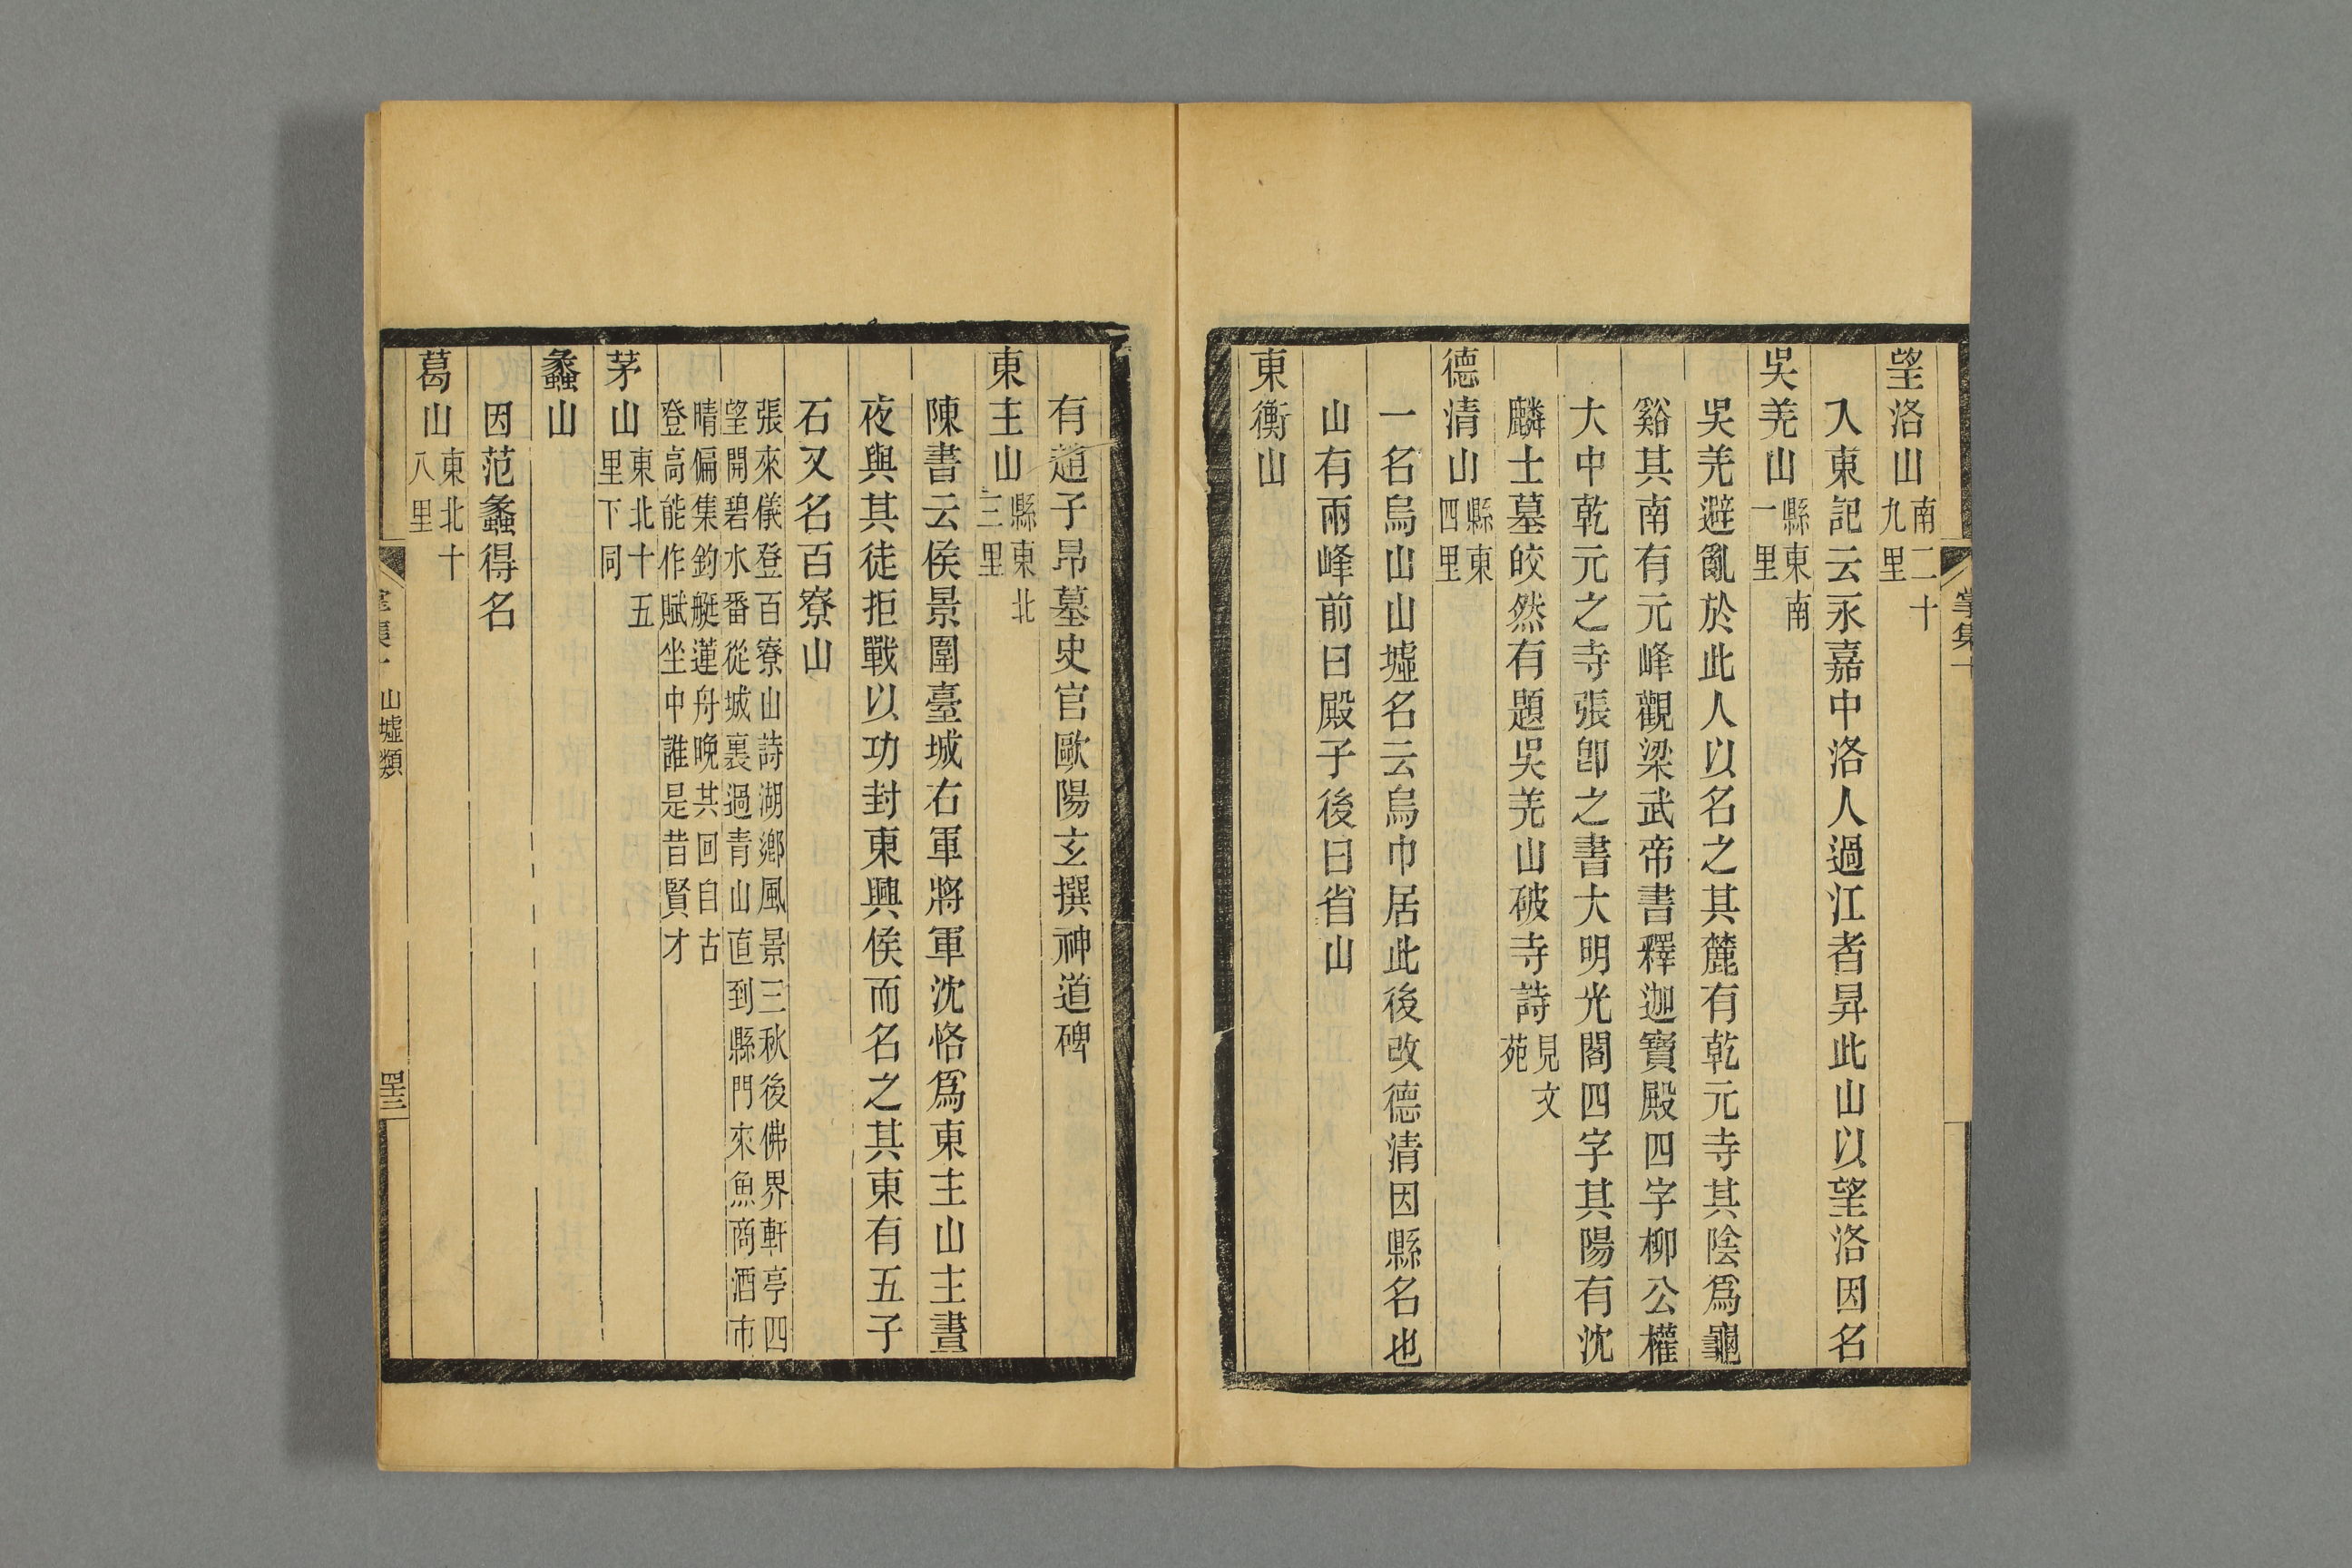 望洛山南二十九里
入東記云永嘉中洛人過江者昇此山以望洛因名
吳羌山縣東南一里
吳羌避亂於此人以名之其麓有乾元寺其陰爲龜
谿其南有元峰觀梁武帝書釋迦寶殿四字柳公權
大中乾元之寺張卽之書大明光閣四字其陽有沈
麟士墓皎然有題吳羌山破寺詩見文苑
德清山縣東四里
一名烏山山墟名云烏巾居此後改德清因縣名也
山有兩峰前曰殿子後曰省山
東衡山
有趙子昻墓史官歐陽玄撰神道碑
東主山縣東北三里
陳書云侯景圍臺城右軍將軍沈恪爲東主山主晝
夜與其徒拒戰以功封東興侯而名之其東有五子
石又名百寮山
張來儀登百寮山詩湖鄉風景三秋後佛界軒亭四
望開碧水番從城裏過青山直到縣門來魚商酒市
晴偏集釣艇蓮舟晚其回自古
登高能作賦坐中誰是昔賢才
茅山東北十五里下同
蠡山
因范蠡得名
葛山東北十八里
山墟類